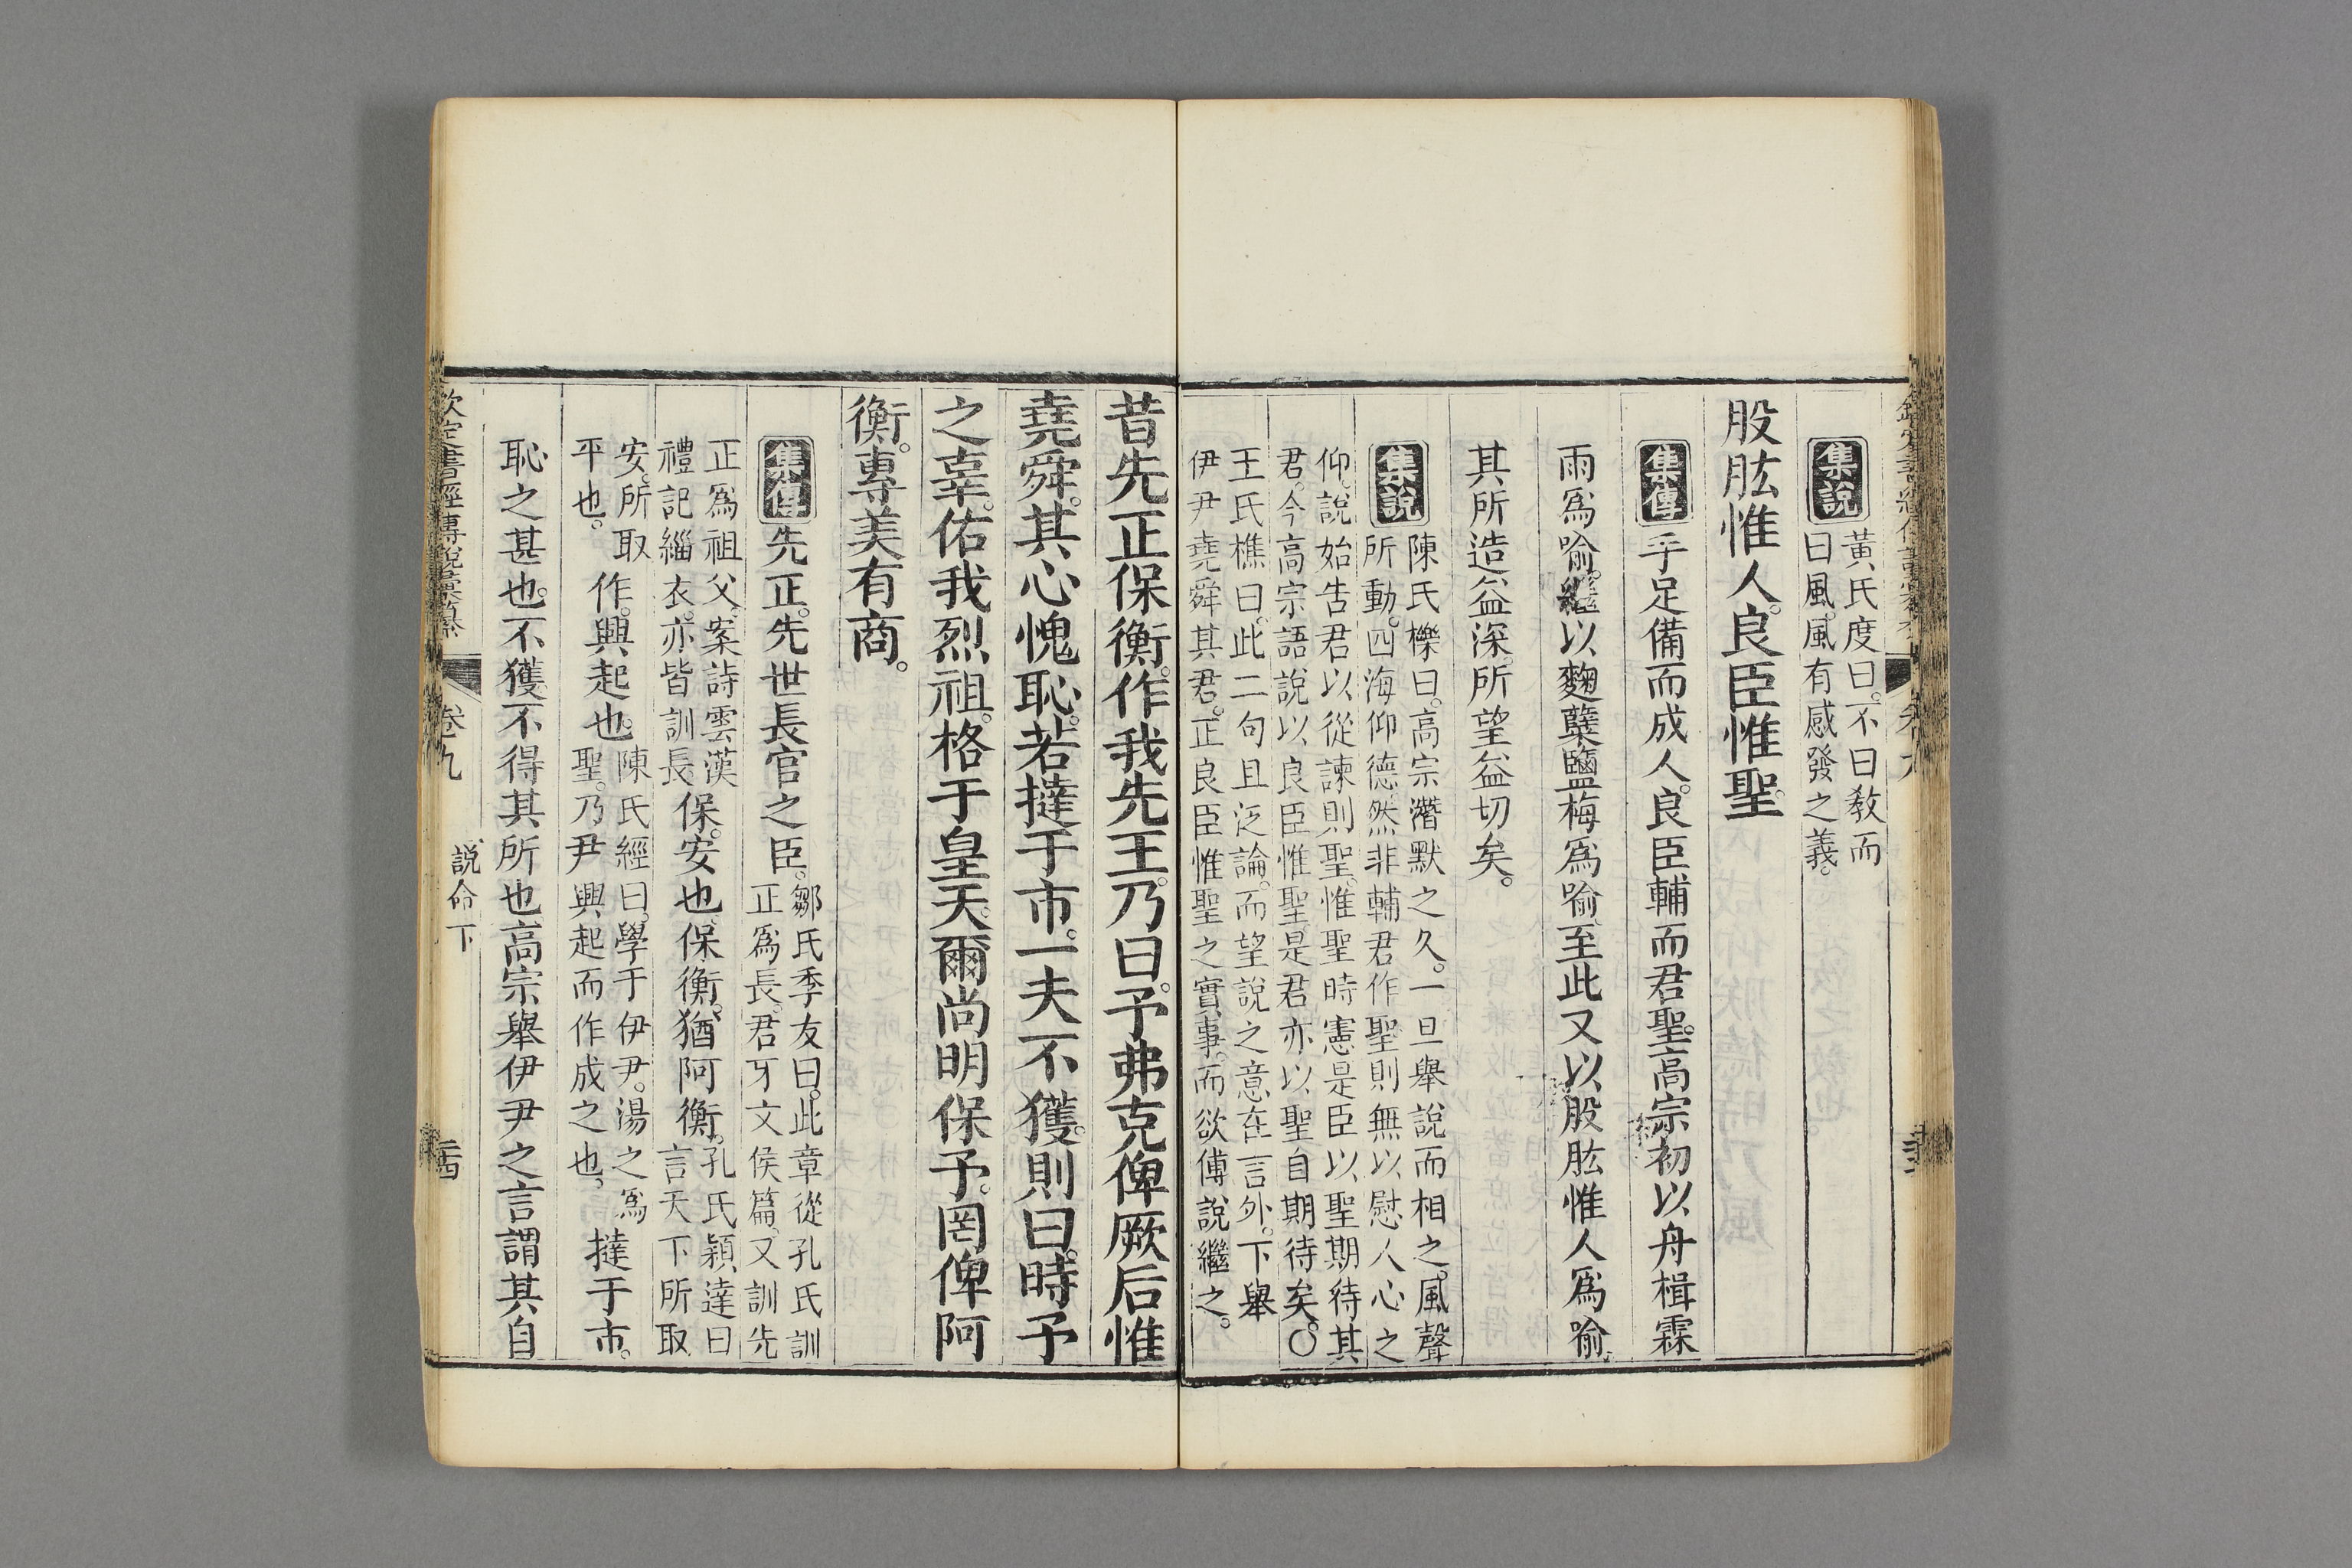 集說
黃氏度曰。不曰敎而
曰風。風有感發之義。
股肱惟人。良臣惟聖。
集傳 手足備而成人。良臣輔而君聖。高宗初以舟楫霖
雨爲喻。繼以麴糵鹽梅爲喻。至此又以股肱惟人爲喻。
其所造益深。所望益切矣。
集說
陳氏櫟曰。高宗潛默之久。一旦舉說而相之。風聲
所動。四海仰德。然非輔君作聖。則無以慰人心之
仰。說始告君以從諫則聖。惟聖時憲。是臣以聖期待其
君。今高宗語說以良臣惟聖。是君亦以聖自期待矣。○
王氏樵曰。此二句且泛論。而望說之意在言外。下舉
伊尹堯舜其君。正良臣惟聖之實事。而欲傅說繼之。
昔先正保衡。作我先王。乃曰。予弗克俾厥后惟
堯舜。其心愧恥。若撻于市。一夫不獲。則曰。時予
之辜。佑我烈祖。格于皇天。爾尚明保予。罔俾阿
衡。專美有商。
集傳 先正。先世長官之臣。
鄒氏季友曰。此章從孔氏訓
正爲長。君牙文侯篇。又訓先
正爲祖父。案詩雲漢
禮記緇衣。亦皆訓長
保。安也。保衡。猶阿衡。
孔氏穎達曰
言天下所取
安。所取
平也。
作。興起也。
陳氏經曰。學于伊尹。湯之爲
聖。乃尹興起而作成之也。
撻于市。
恥之甚也。不獲。不得其所也。高宗舉伊尹之言。謂其自
欽定書經傳說彙纂 卷九 說命下 二四